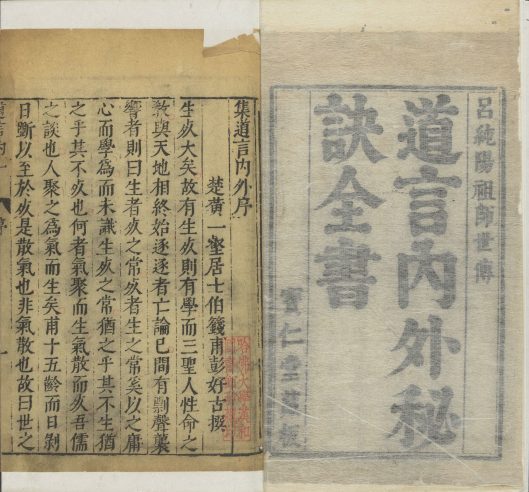 呂純陽祖師世傳
道言內外秘
訣全書
仁堂藏板
集道言內外序
楚黃一壑居士伯籛甫彭好古撰
生死大矣故有生死則有學而三聖人性命之
教與天地相終始逐逐者亡論已間有剽聲襲
響者則曰生者死之常死者生之常奚以之庸
心而學為而未識生死之常猶之乎其不生猶
之乎其不死也何者氣聚而生氣散而死吾儒
之談也人聚之為氣而生矣甫十五齡而日剝
日斲以至於死是散氣也非氣散也故曰世之
序
一
哈佛大學漢和
圖書館珍藏印